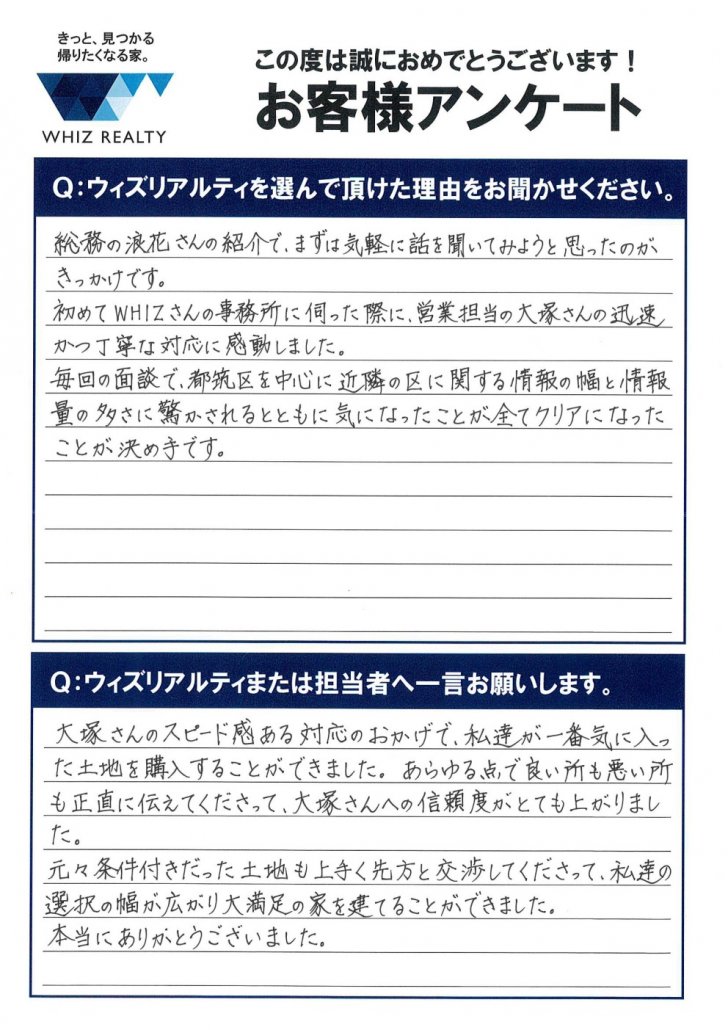 きっと、見つかる
帰りたくなる家。
WHIZ REALTY
この度は誠におめでとうございます!
お客様アンケート
Q:ウィズリアルティを選んで頂けた理由をお聞かせください。
総務の浪花さんの紹介で、まずは気軽に話を聞いてみようと思ったのが
きっかけです。
初めてWHIZさんの事務所に伺った際に、営業担当の大塚さんの迅速
かつ丁寧な対応に感動しました。
毎回の面談で、都筑区を中心に近隣の区に関する情報の幅と情報
量の多さに驚かされるとともに気になったことが全てクリアになった
ことが決め手です。
Q:ウィズリアルティまたは担当者へ一言お願いします。
大塚さんのスピード感ある対応のおかげで、私達が一番気に入っ
た土地を購入することができました。あらゆる点で良い所も悪い所
も正直に伝えてくださって、大塚さんへの信頼度がとても上がりまし
た。
元々条件付きだった土地も上手く先方と交渉してくださって、私達の
選択の幅が広がり大満足の家を建てることができました。
本当にありがとうございました。